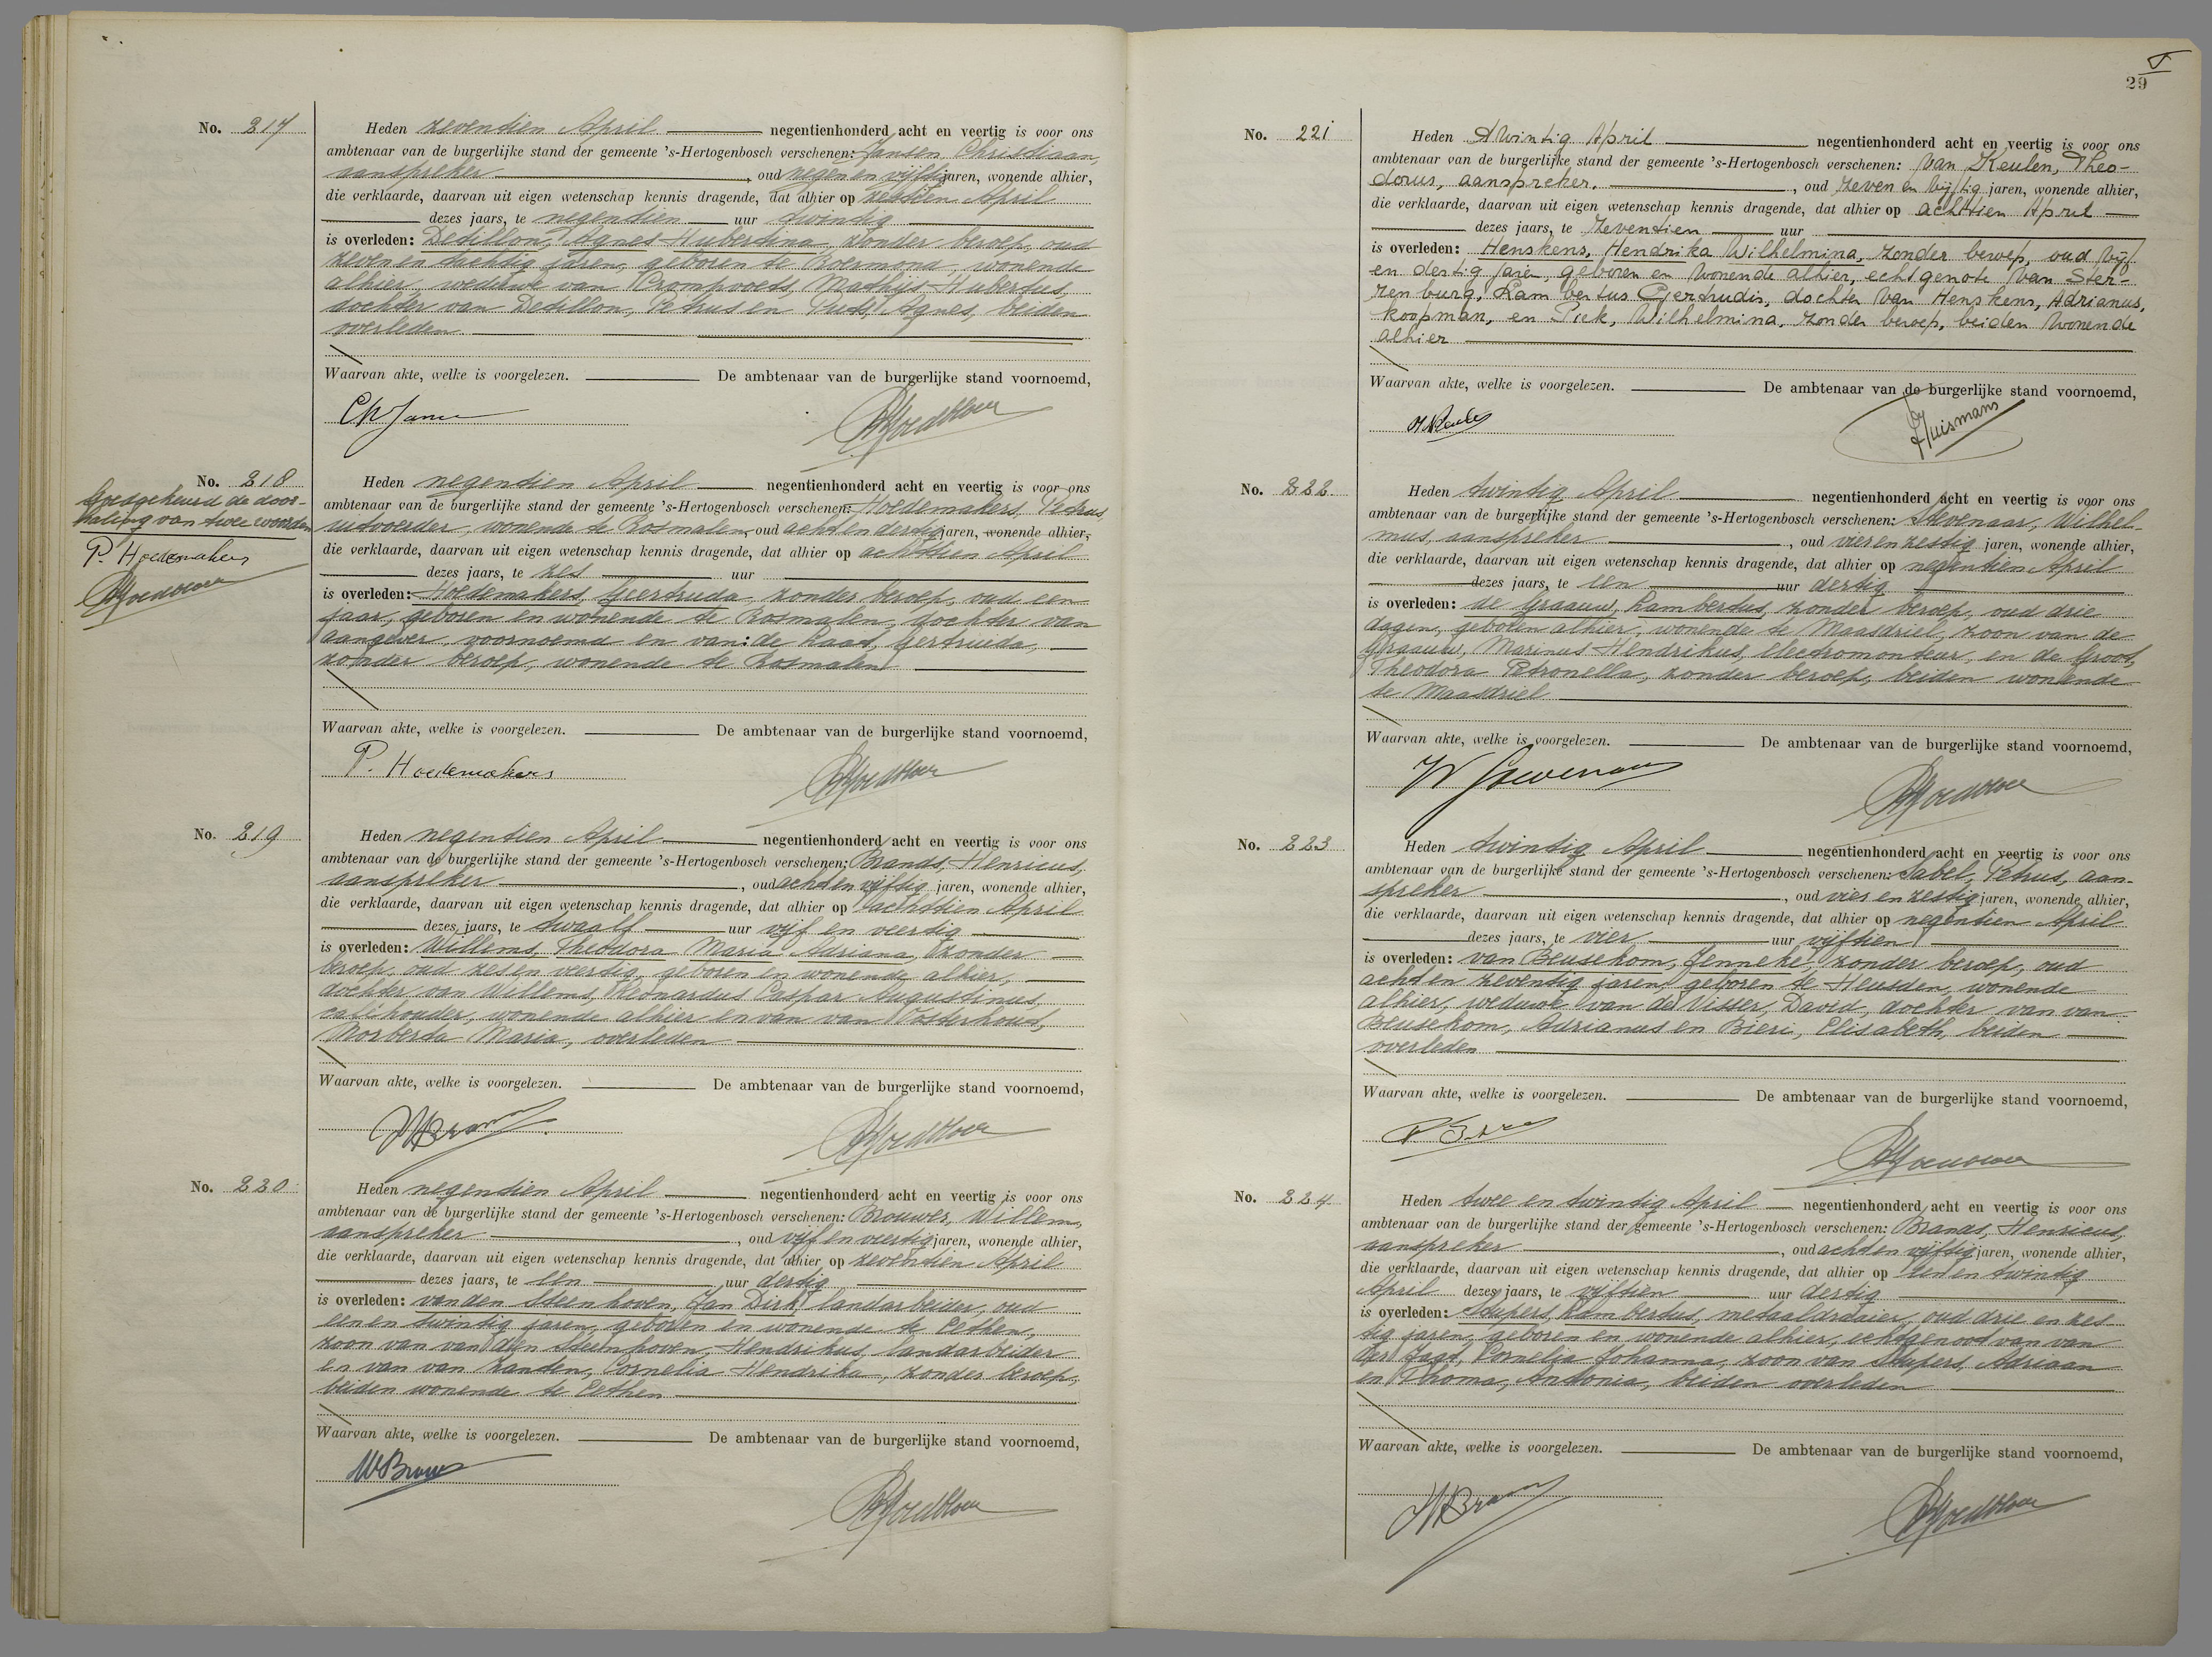 No. 217
Heden zeventien April negentienhonderd acht en veertig is voor ons
ambtenaar van de burgerlijke stand der gemeente 's-Hertogenbosch verschenen: Jansen, Christiaan,
aanspreker, oud negen en vijftig jaren, wonende alhier,
die verklaarde, daarvan uit eigen wetenschap kennis dragende, dat alhier op zestien April
dezes jaars, te negentien uur twintig
is overleden: Dedillon, Agnes Hubertina, zonder beroep, oud
zeven en tachtig jaren, geboren te Roermond, wonende
alhier, weduwe van Crompvoets, Mathijs Hubertus,
dochter van Dedillon, Petrus en Thits, Agnes, beiden
overleden
Waarvan akte, welke is voorgelezen. De ambtenaar van de burgerlijke stand voornoemd,
No. 218
Goedgekeurd de door-
haling van twee woorden
P. Hoedemakers
Heden negentien April negentienhonderd acht en veertig is voor ons
ambtenaar van de burgerlijke stand der gemeente 's-Hertogenbosch verschenen: Hoedemakers, Petrus,
uitvoerder, wonende te Rosmalen, oud acht en dertig jaren, wonende alhier,
die verklaarde, daarvan uit eigen wetenschap kennis dragende, dat alhier op achttien April
dezes jaars, te zes uur
is overleden: Hoedemakers, Geertruda, zonder beroep, oud een
jaar, geboren en wonende te Rosmalen, dochter van
aangever voornoemd en van: de Laat, Gertruida,
zonder beroep, wonende te Rosmalen
Waarvan akte, welke is voorgelezen. De ambtenaar van de burgerlijke stand voornoemd,
P. Hoedemakers
No. 219
Heden negentien April negentienhonderd acht en veertig is voor ons
ambtenaar van de burgerlijke stand der gemeente 's-Hertogenbosch verschenen: Brands, Henricus,
aanspreker, oud acht en vijftig jaren, wonende alhier,
die verklaarde, daarvan uit eigen wetenschap kennis dragende, dat alhier op achttien April
dezes jaars, te twaalf uur vijf en veertig
is overleden: Willems, Theodora Maria Adriana, zonder
beroep, oud zes en veertig, geboren en wonende alhier,
dochter van Willems, Leonardus Caspar Augustinus,
caféhouder, wonende alhier en van van Oosterhout,
Norberta Maria, overleden
Waarvan akte, welke is voorgelezen. De ambtenaar van de burgerlijke stand voornoemd,
No. 220
Heden negentien April negentienhonderd acht en veertig is voor ons
ambtenaar van de burgerlijke stand der gemeente 's-Hertogenbosch verschenen: Brouwer, Willem,
aanspreker, oud vijf en veertig jaren, wonende alhier,
die verklaarde, daarvan uit eigen wetenschap kennis dragende, dat alhier op zeventien April
dezes jaars, te een uur dertig
is overleden: van den Steenhoven, Jan Dirk, landarbeider, oud
een en twintig jaren, geboren en wonende te Eethen,
zoon van van den Steenhoven, Hendrikus, landarbeider
en van van Zanten, Cornelia Hendrika, zonder beroep,
beiden wonende te Eethen
Waarvan akte, welke is voorgelezen. De ambtenaar van de burgerlijke stand voornoemd,
WBrouwer
29
No. 221
Heden Twintig April negentienhonderd acht en veertig is voor ons
ambtenaar van de burgerlijke stand der gemeente 's-Hertogenbosch verschenen: Van Keulen, Theo-
dorus, aanspreker, oud zeven en vijftig jaren, wonende alhier,
die verklaarde, daarvan uit eigen wetenschap kennis dragende, dat alhier op achttien April
dezes jaars, te zeventien uur
is overleden: Henskens, Hendrika Wilhelmina, zonder beroep, oud vijf
en dertig jaren, geboren en wonende alhier, echtgenote van Ster-
renburg, Lambertus Gertrudis, dochter van Henskens, Adrianus,
koopman, en Piek, Wilhelmina, zonder beroep, beiden wonende
alhier
Waarvan akte, welke is voorgelezen. De ambtenaar van de burgerlijke stand voornoemd,
Huismans
No. 222
Heden twintig April negentienhonderd acht en veertig is voor ons
ambtenaar van de burgerlijke stand der gemeente 's-Hertogenbosch verschenen: Stevenaar, Wilhel-
mus, aanspreker, oud vier en zestig jaren, wonende alhier,
die verklaarde, daarvan uit eigen wetenschap kennis dragende, dat alhier op negentien April
dezes jaars, te een uur dertig
is overleden: de Graauw, Lambertus, zonder beroep, oud drie
dagen, geboren alhier, wonende te Maasdriel, zoon van de
Graauw, Marinus Hendrikus, electromonteur, en de Groot,
Theodora Petronella, zonder beroep, beiden wonende
te Maasdriel
Waarvan akte, welke is voorgelezen. De ambtenaar van de burgerlijke stand voornoemd,
No. 223
Heden twintig April negentienhonderd acht en veertig is voor ons
ambtenaar van de burgerlijke stand der gemeente 's-Hertogenbosch verschenen: Sabel, Petrus, aan-
spreker, oud vier en zestig jaren, wonende alhier,
die verklaarde, daarvan uit eigen wetenschap kennis dragende, dat alhier op negentien April
dezes jaars, te vier uur vijftien
is overleden: van Beusekom, Jenneke, zonder beroep, oud
acht en zeventig jaren, geboren te Heusden, wonende
alhier, weduwe van de Visser, David, dochter van van
Beusekom, Adrianus en Bieri, Elisabeth, beiden
overleden
Waarvan akte, welke is voorgelezen. De ambtenaar van de burgerlijke stand voornoemd,
No. 224
Heden twee en twintig April negentienhonderd acht en veertig is voor ons
ambtenaar van de burgerlijke stand der gemeente 's-Hertogenbosch verschenen: Brands, Henricus,
aanspreker, oud acht en vijftig jaren, wonende alhier,
die verklaarde, daarvan uit eigen wetenschap kennis dragende, dat alhier op een en twintig
April dezes jaars, te vijftien uur dertig
is overleden: Stupers, Lambertus, metaaldraaier, oud drie en zes-
tig jaren, geboren en wonende alhier, echtgenoot van van
der Jagt, Cornelia Johanna, zoon van Stupers, Adriaan
en Thoma, Antonia, beiden overleden
Waarvan akte, welke is voorgelezen. De ambtenaar van de burgerlijke stand voornoemd,